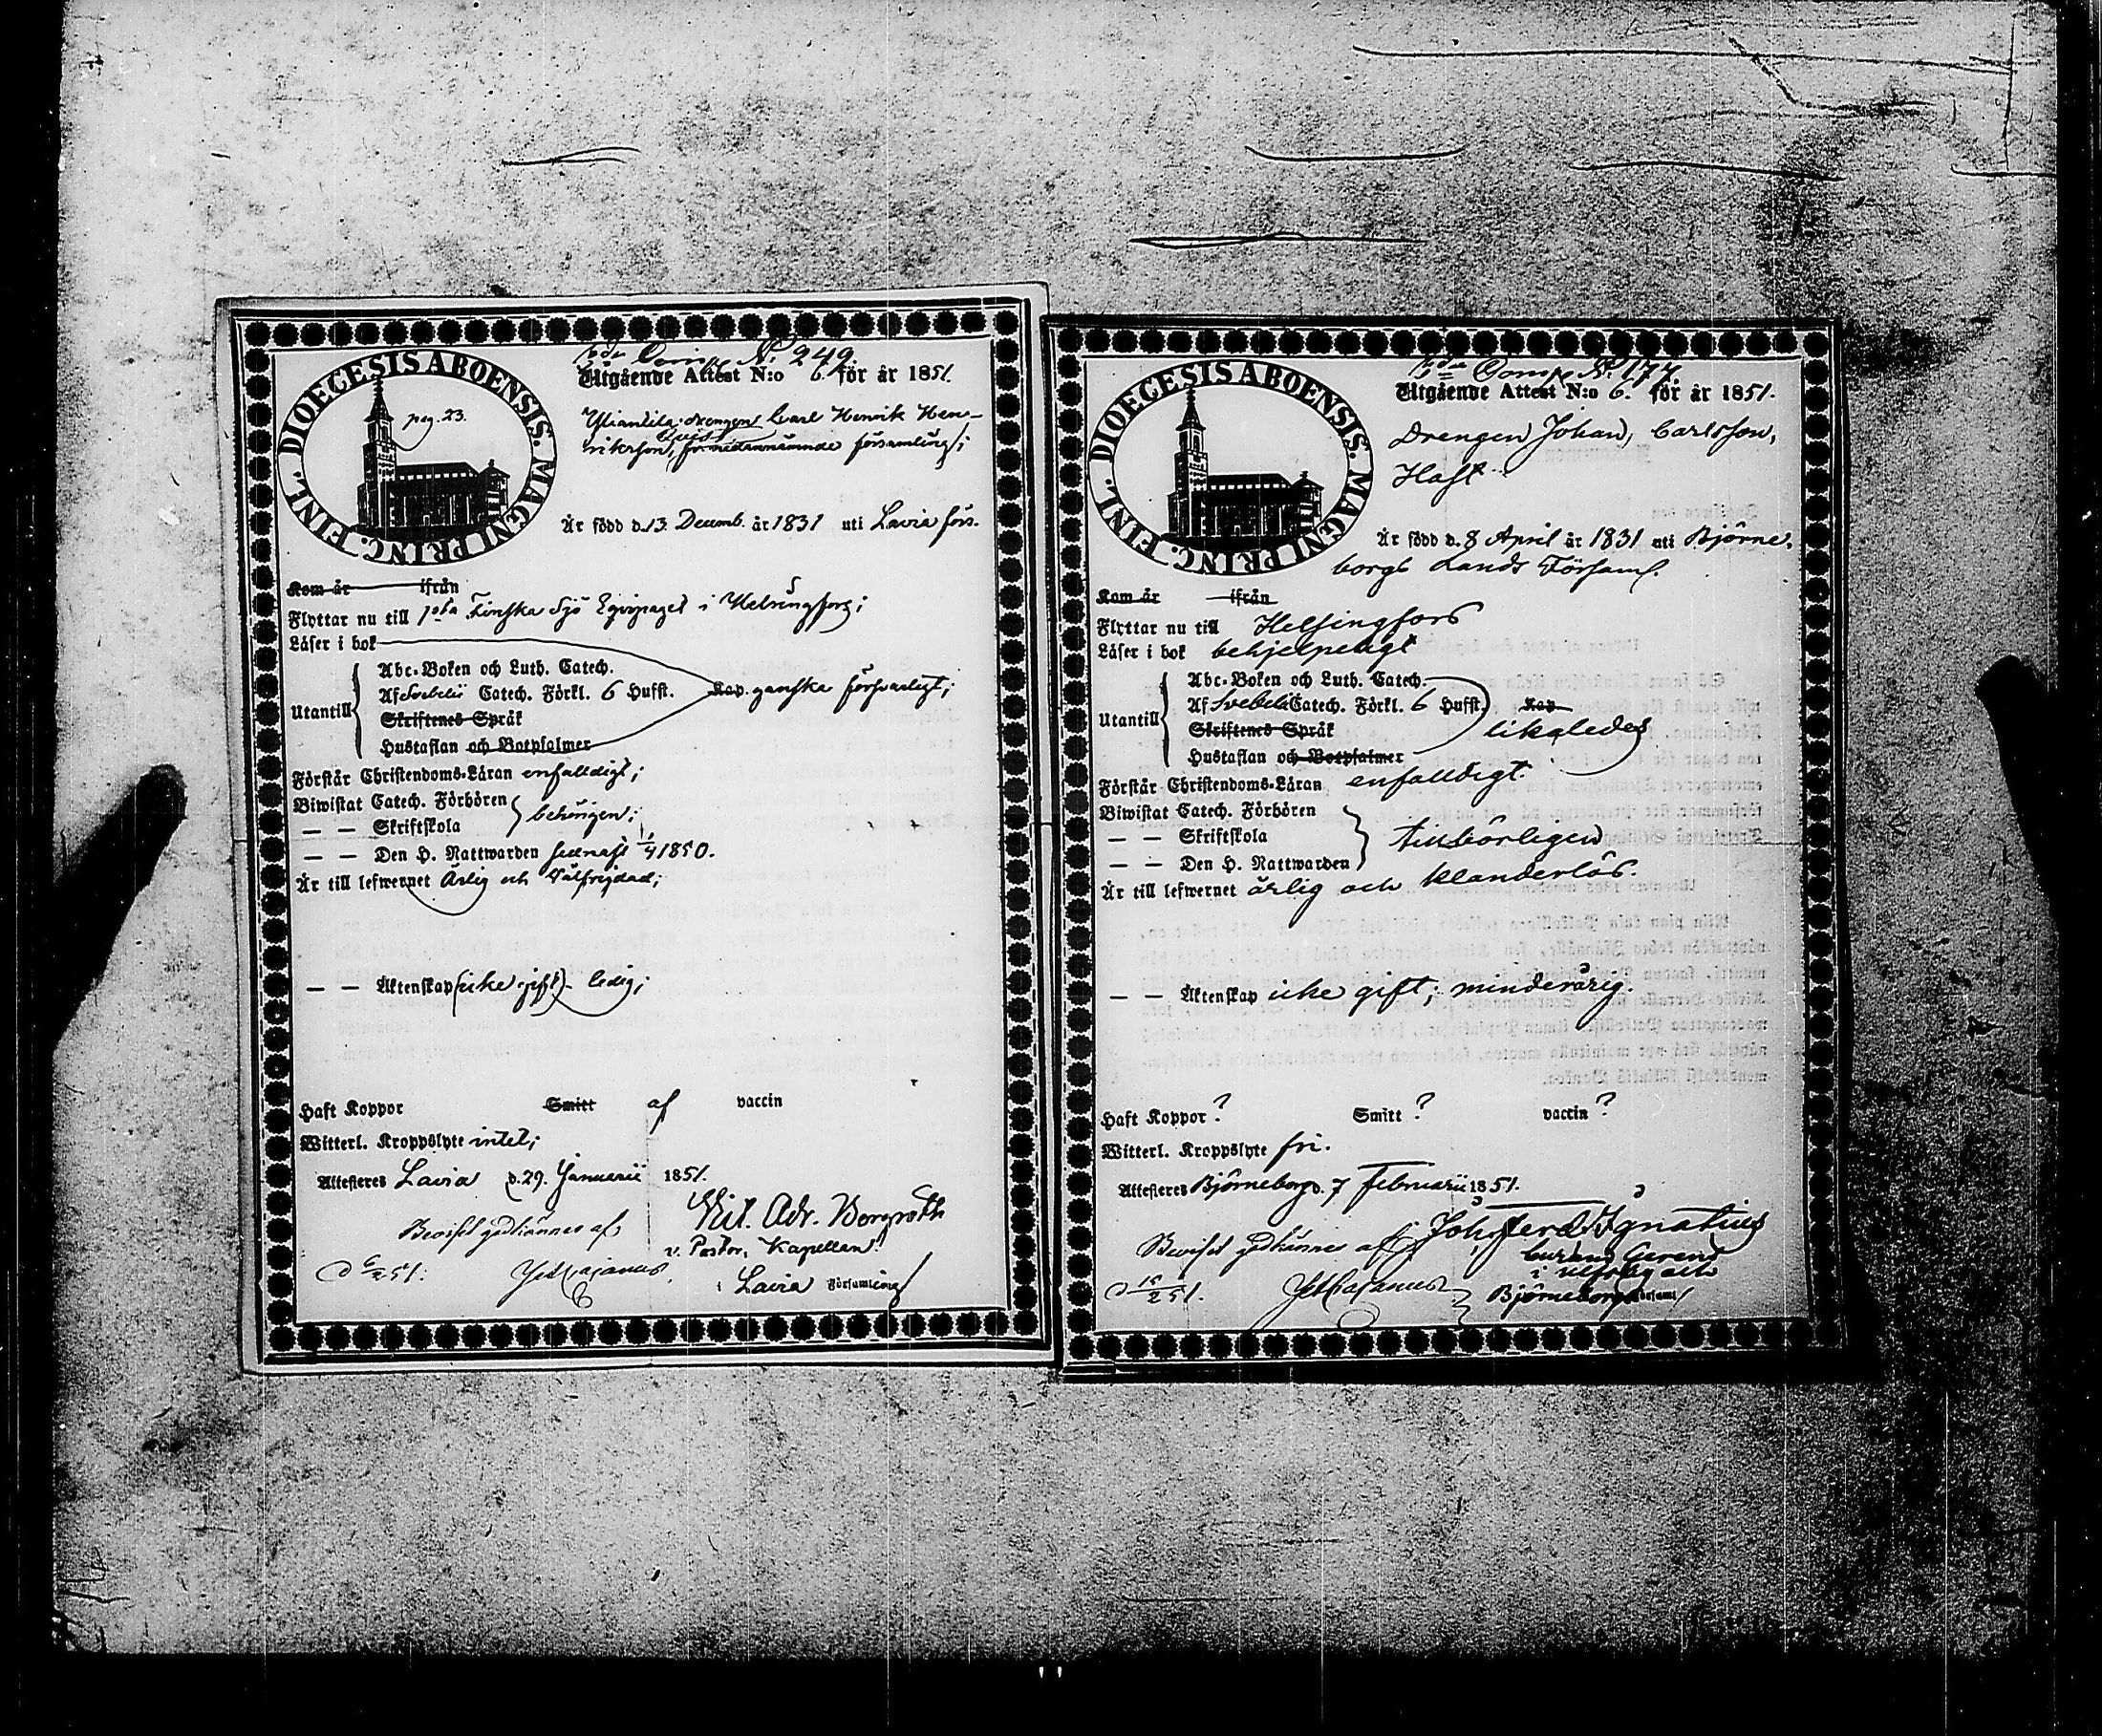 DIOECESIS ABOENSIS. MAGNI PRINC. FINL.
pag. 23.
Comp. N: 249.
Utgående Attest N:o 6. för år 1851.
drengen Carl Henrik Hen-
Quist
rikhson, församling;
Är född d. 13 Decemb. år 1831 uti Lavia förs.
Kom år ifrån
Flyttar nu till 1sta Finska Sjö Equipaget i Helsingfors;
Läser i bok
Utantill
Abc-Boken och Luth. Catech.
Af Svebelii Catech. Förkl. 6 Hufst. Kap. ganska försvarligt;
Skriftenes Språk
Hustaflan och Botpsalmer
Förstår Christendoms-Läran enfalldigt;
Biwistat Catech. Förhören
— — Skriftskola behörigen;
— — Den H. Nattwarden sednast 1850.
Är till lefwernet Ärlig och Välfrejdad;
— — Äktenskap (icke gift) ledig;
Haft Koppor Smitt af vaccin
Witterl. Kroppslyte intet;
Attesteres Lavia d. 29. Januarii 1851.
Adr. Borgroth
v. Pastor, Kapellan
Beviset godkännes af
i Lavia Församling
DIOECESIS ABOENSIS. MAGNI PRINC. FINL.
Comp. N: 177
Utgående Attest N:o 6. för år 1851.
Drengen Johan, Carlsson,
Hast
Är född d. 8 April år 1831 uti Björne-
borgs Lands Församl.
Kom år ifrån
Flyttar nu till Helsingfors
Läser i bok behjelpeligt
Utantill
Abc-Boken och Luth. Catech.
Af Svebelii Catech. Förkl. 6 Hufst. Kap
Skriftenes Språk likaledes
Hustaflan och Botpsalmer
Förstår Christendoms-Läran enfalldigt.
Biwistat Catech. Förhören
— — Skriftskola tillbörligen
— — Den H. Nattwarden
Är till lefwernet ärlig och klanderlös.
— — Äktenskap icke gift; minderårig.
Haft Koppor? Smitt? vaccin?
Witterl. Kroppslyte fri.
Attesteres Björneborg d. 7 Februarii 1851.
Joh. Ferd. Ignatius
Beviset godkännes af
i Ulfsby och
Björneborgs Församl.